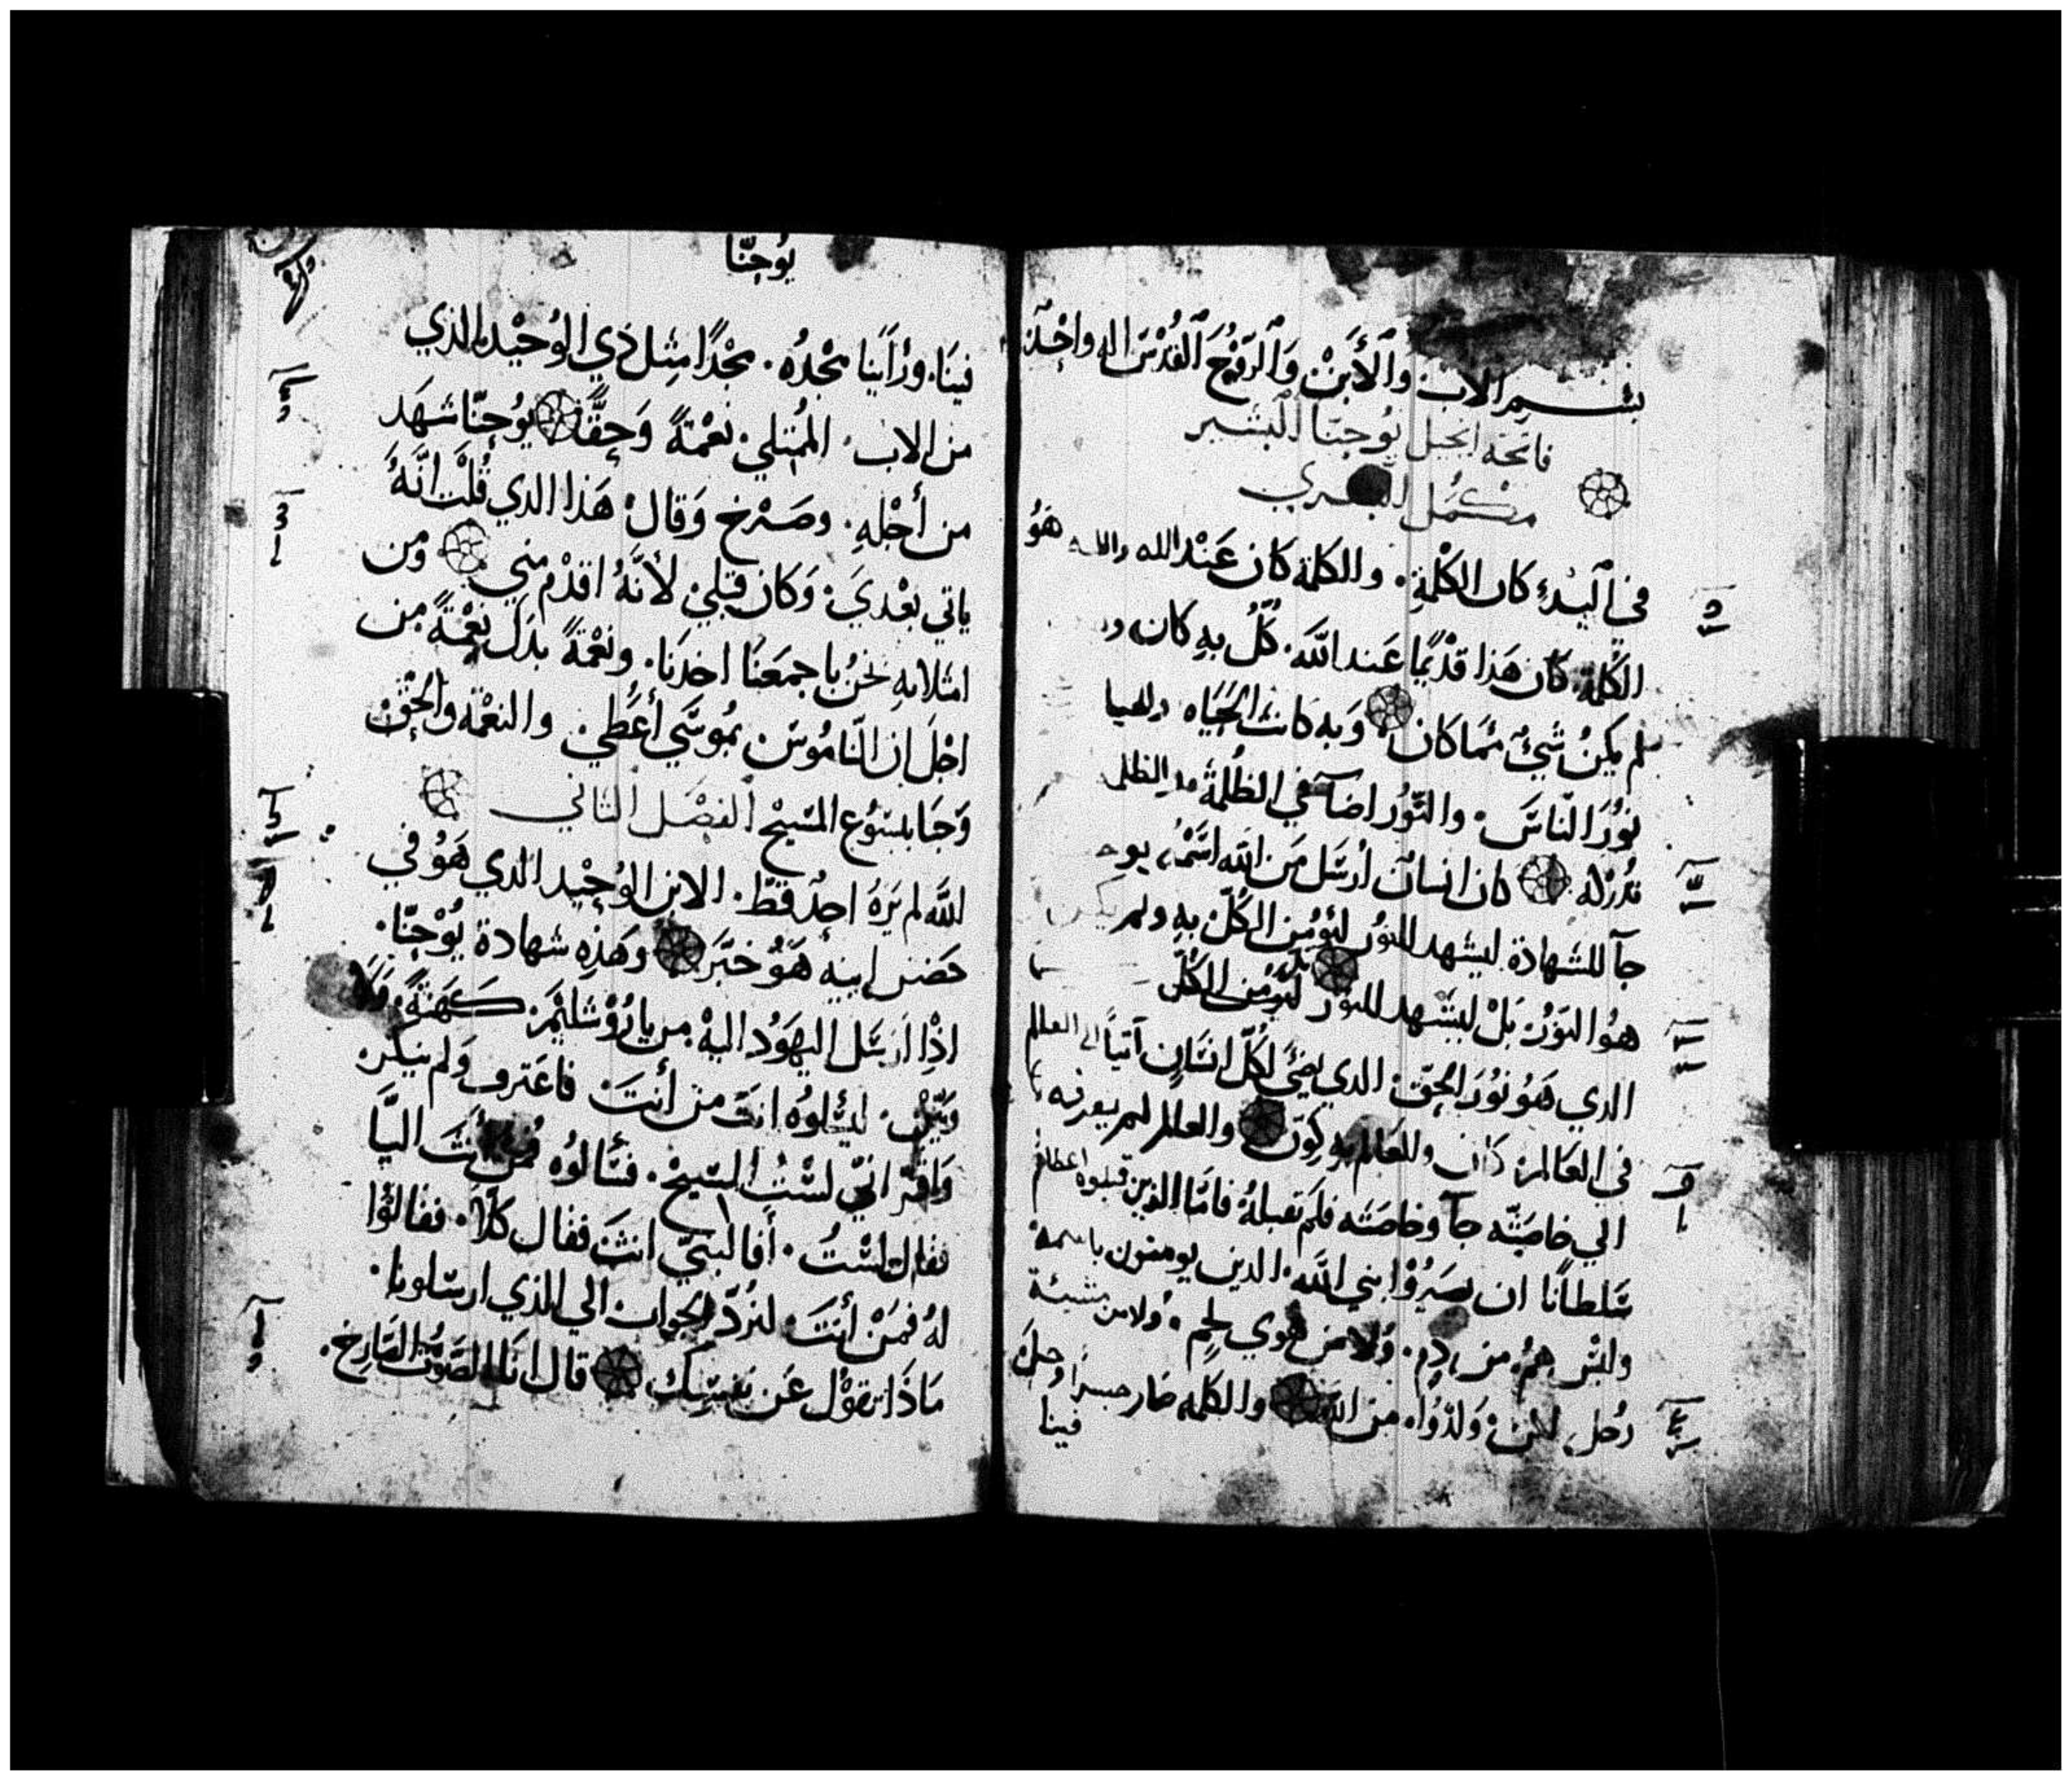 بسم الاب والأبن والروح القدس اله واحد
فاتحة انجيل يوحنا البشير
في البدء كان الكلمة. والكلمة كان عند الله والله هو
الكلمة. كان هذا قديما عند الله. كل به كان
لم يكن شيء مما كان وبه كانت الحياه
نور الناس. والنور اضآ في الظلمة
كان انسان أرسل من الله اسمه
جآ للشهادة ليشهد للنور ليؤمن الكل به ولم
هو النور. بل ليشهد للنور ليؤمن الكل
الذي هو نور الحق. الذي يضئ لكل انسان آتيا الى العالم
في العالم كان والعالم به كون والعالم لم يعرفه
الي خاصته جآ وخاصته فلم تقبله فاما الذين قبلوه اعطاهم
سلطانا ان يصيروا بني الله. الذين يومنون باسمه
وليس هم من دم. ولا من هوي لحم. ولا من مشيئة
رجل. لكن ولدوا من الله والكلمه صار جسدا وحل
فينا
يوحنا
فينا. ورأينا مجده. مجدا مثل ذي الوحيد الذي
من الاب. الممتلي نعمة وحقا يوحنا شهد
من أجله. وصرخ وقال هذا الذي قلت انه
ياتي بعدي. وكان قبلي لأنه اقدم مني ومن
امتلايه نحن باجمعنا اخدنا. ونعمة بدل نعمة من
اجل ان الناموس بموسي أعطي. والنعمة والحق
وجا بيسوع المسيح الفصل الثاني
الله لم يره احد قط. الابن الوحيد الذي هو في
حضن ابيه هو خبر وهذه شهادة يوحنا.
اذ ارسل اليهود اليه من ياروشليم كهنة
ليسئلوه انت من أنت فاعترف ولم ينكر
واقر اني لست المسيح. فسالوه فمن أنت اليا
فقال لست. أفالنبي انت فقال كلا. فقالوا
له فمن أنت. لنرد الجواب الي الذي ارسلونا.
ماذا تقول عن نفسك قال انا الصوت الصارخ.